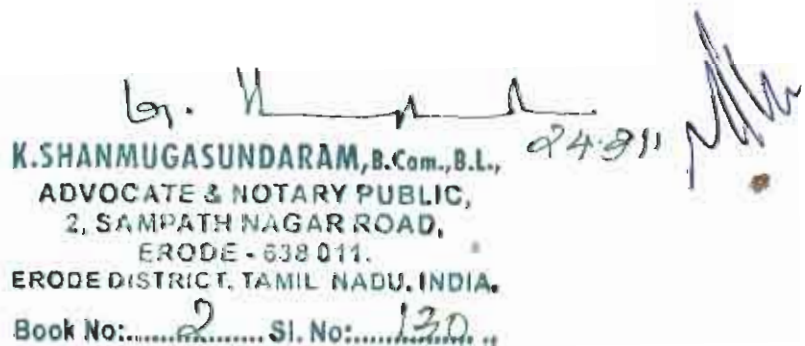 24.3.11
K.SHANMUGASUNDARAM, B.Com., B.L.,
ADVOCATE & NOTARY PUBLIC,
2, SAMPATH NAGAR ROAD,
ERODE - 638 011.
ERODE DISTRICT, TAMIL NADU. INDIA.
Book No:......2...... Sl. No:......130....